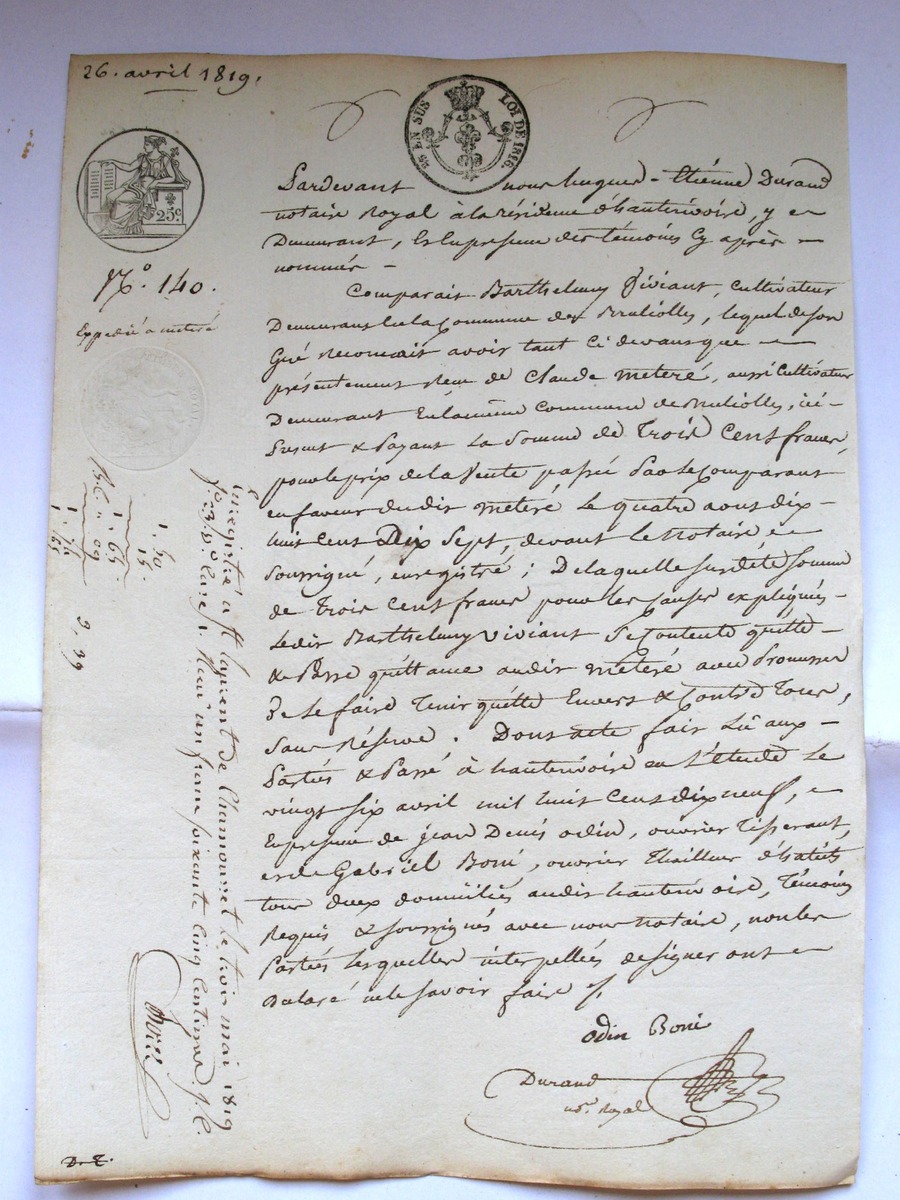 26. avril 1819.
25 EN SUS LOI DE 1816.
25c
Pardevant nous hugues - Etiénne Durand
notaire Royal à la résidence d'hauterivoire, y
Demeurant, Et En presence des témoins Cy après
nommés
N.o 140.
Expedié a meteré
Comparait Barthelemy Viviant, Cultivateur
Demeurant En la Commune de Bruliolles, lequel de son
Gré Reconnait avoir tant Ci devant que
présentement Reçu de Claude meteré, aussi Cultivateur
Demeurant En la même Commune de Brulliolles, ici
Present & Payant La Somme de Trois Cent francs
pour le prix de la Vente passée Par le Comparant
en faveur du dit meteré Le quatre aout dix-
huit Cent Dix Sept, devant le Notaire
Soussigné, enregistré ; De laquelle susdite somme
de trois Cent francs pour les Causes expliqués
Ledit Barthelemy Viviant Se Contente quitte
& Passe quittance audit meteré avec Promesse
De le faire Tenir quitte Envers & Contre Tous,
Sans Réserve. Dont acte fait Lu aux
Parties & Passé à hauterivoire en L'étude Le
vingt six avril mil huit Cent dix neuf,
En presence de jean Denis odin, ouvrier Tisserant,
et de Gabriel Boni, ouvrier Thailleur d'habits
tous deux domiciliés audit hauterivoire, Témoins
Requis & soussignés avec nous notaire, non les
Parties Lesquelles interpellées de signer ont
Declaré ne le savoir faire
odin Boni
Durand
no.re Royal
Enregistré a St Laurent de Chamousset le trois mai 1819
f.o 23. v.o Case 1. Recu un franc soixante cinq centimes
1, 50
15
1, 65
3, 39
D. E.